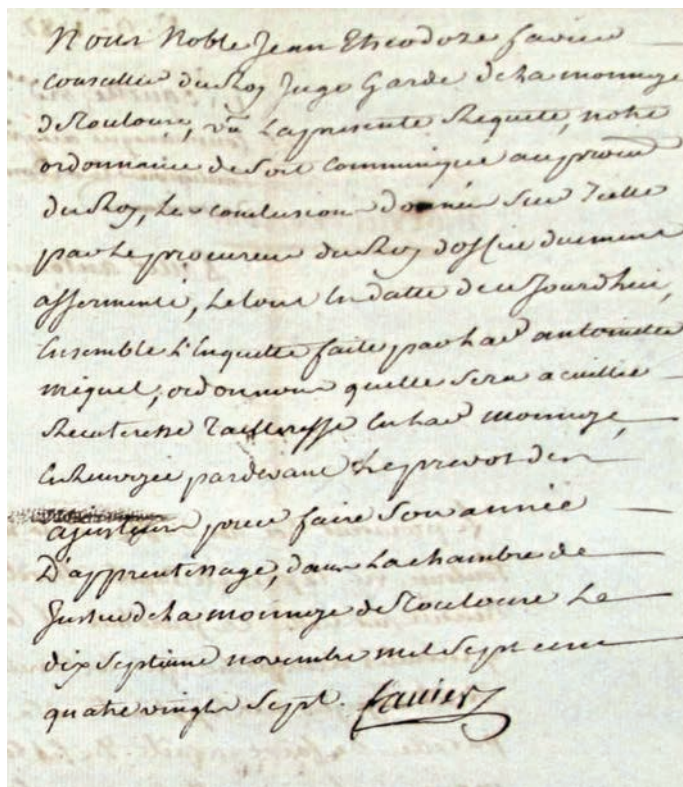 Nous Noble Jean Theodore favier
Conseiller du Roy Juge Garde de La monnoye
de Toulouse, vû La presente Requete, notre
ordonnance de Soit Communiqué au procur
du Roy, Les conclusions données Sur Icelle
par Le procureur du Roy d'office duement
assermenté, Le tout En datte de ce Jourdhui,
Ensemble L'Enquette faite par La d antoinette
miquel, ordonnons quelle sera acuillie
Recuteresse Tailleresse En lad monnoye,
Et Renvoyée pardevant Le prevot des
ajusteurs pour faire Son année
D'apprentissage, dans La chambre de
Justice de La monnoye de Toulouse Le
dix Septieme novembre mil Sept cens
quatre vingts Sept. favier